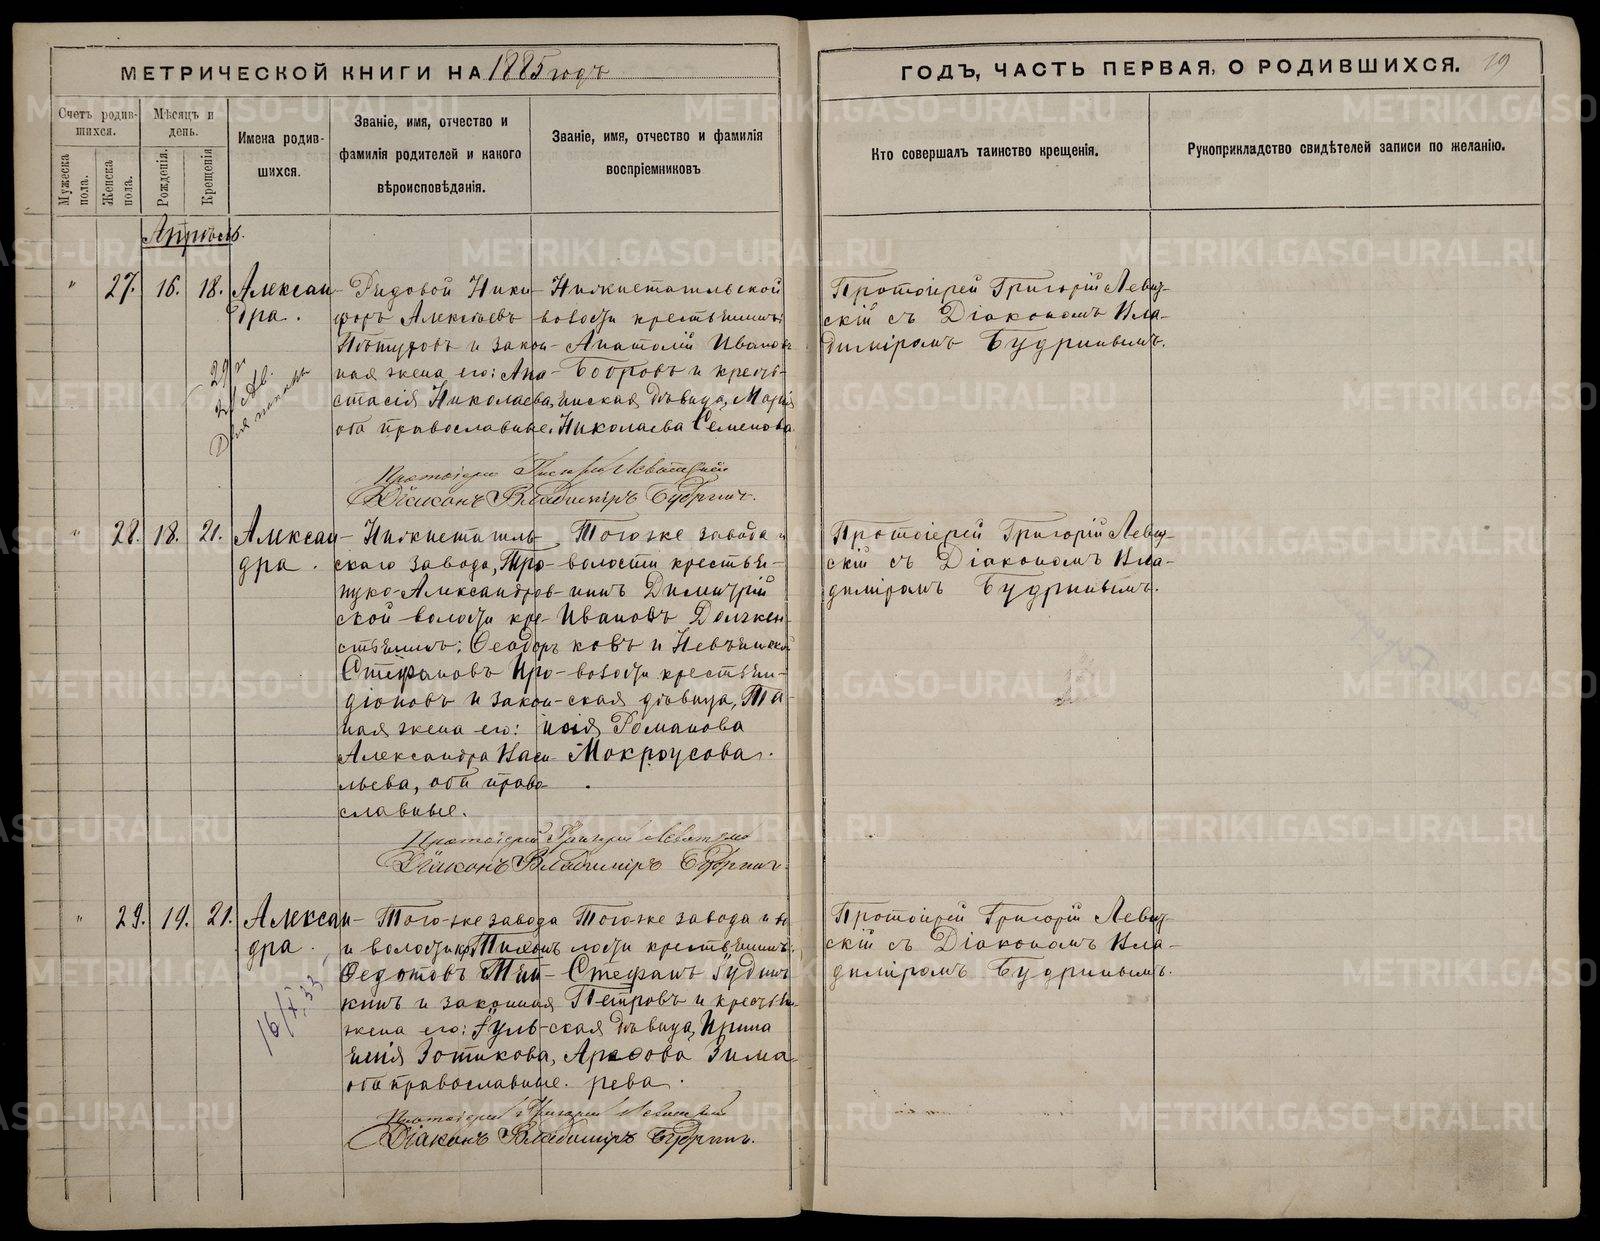 МЕТРИЧЕСКОЙ КНИГИ НА 1885 годъ
Счетъ родив-
шихся.
Мужеска пола.
Женска пола.
Мѣсяцъ и
день.
Рожденія.
Крещенія.
Имена родив-
шихся.
Званіе, имя, отчество и
фамилія родителей и какого
вѣроисповѣданія.
Званіе, имя, отчество и фамилія
воспріемниковъ
ГОДЪ, ЧАСТЬ ПЕРВАЯ, О РОДИВШИХСЯ. 19
Кто совершалъ таинство крещенія.
Рукоприкладство свидѣтелей записи по желанію.
Апрѣль.
" 27. 16. 18.
Алексан-
дра.
Рядовой Ники-
форъ Алексѣевъ
Пѣтуховъ и закон-
ная жена его: Ана-
стасія Николаева,
оба православные.
Нижнетагильской
волости крестьянинъ
Анатолій Ивановъ
Бобровъ и кресть-
янская дѣвица, Марія
Николаева Семенова
Протоіерей Григорій Левит-
скій съ Діакономъ Вла-
диміромъ Будринымъ.
Протоіерей Григорій Левитскій
Діаконъ Владиміръ Будринъ.
" 28. 18. 21.
Алексан-
дра.
Нижнетагиль-
скаго завода, Тро-
ицко-Александров-
ской волости кре-
стьянинъ: Феодоръ
Стефановъ Иро-
діоновъ и закон-
ная жена его:
Александра Васи-
льева, оба право-
славные.
Того же завода и
волости крестья-
нинъ Димитрій
Ивановъ Должен-
ковъ и Невьянской
волости крестьян-
ская дѣвица, Та-
исія Романова
Мокроусова.
Протоіерей Григорій Левит-
скій съ Діакономъ Вла-
диміромъ Будринымъ.
Протоіерей Григорій Левитскій
Діаконъ Владиміръ Будринъ.
" 29. 19. 21.
Алексан-
дра.
16/X 33
Того-же завода
и волости кр.
Федотовъ
кинъ и законная
жена его: Іуль-
янія Зотикова,
оба православные.
Того же завода и во-
лости крестьянинъ:
Стефанъ Гудинъ
Петровъ и крестьян-
ская дѣвица, Ирина
Арефова Зима-
рева.
Протоіерей Григорій Левит-
скій съ Діакономъ Вла-
диміромъ Будринымъ.
Протоіерей Григорій Левитскій
Діаконъ Владиміръ Будринъ.
METRIKI.GASO-URAL.RU